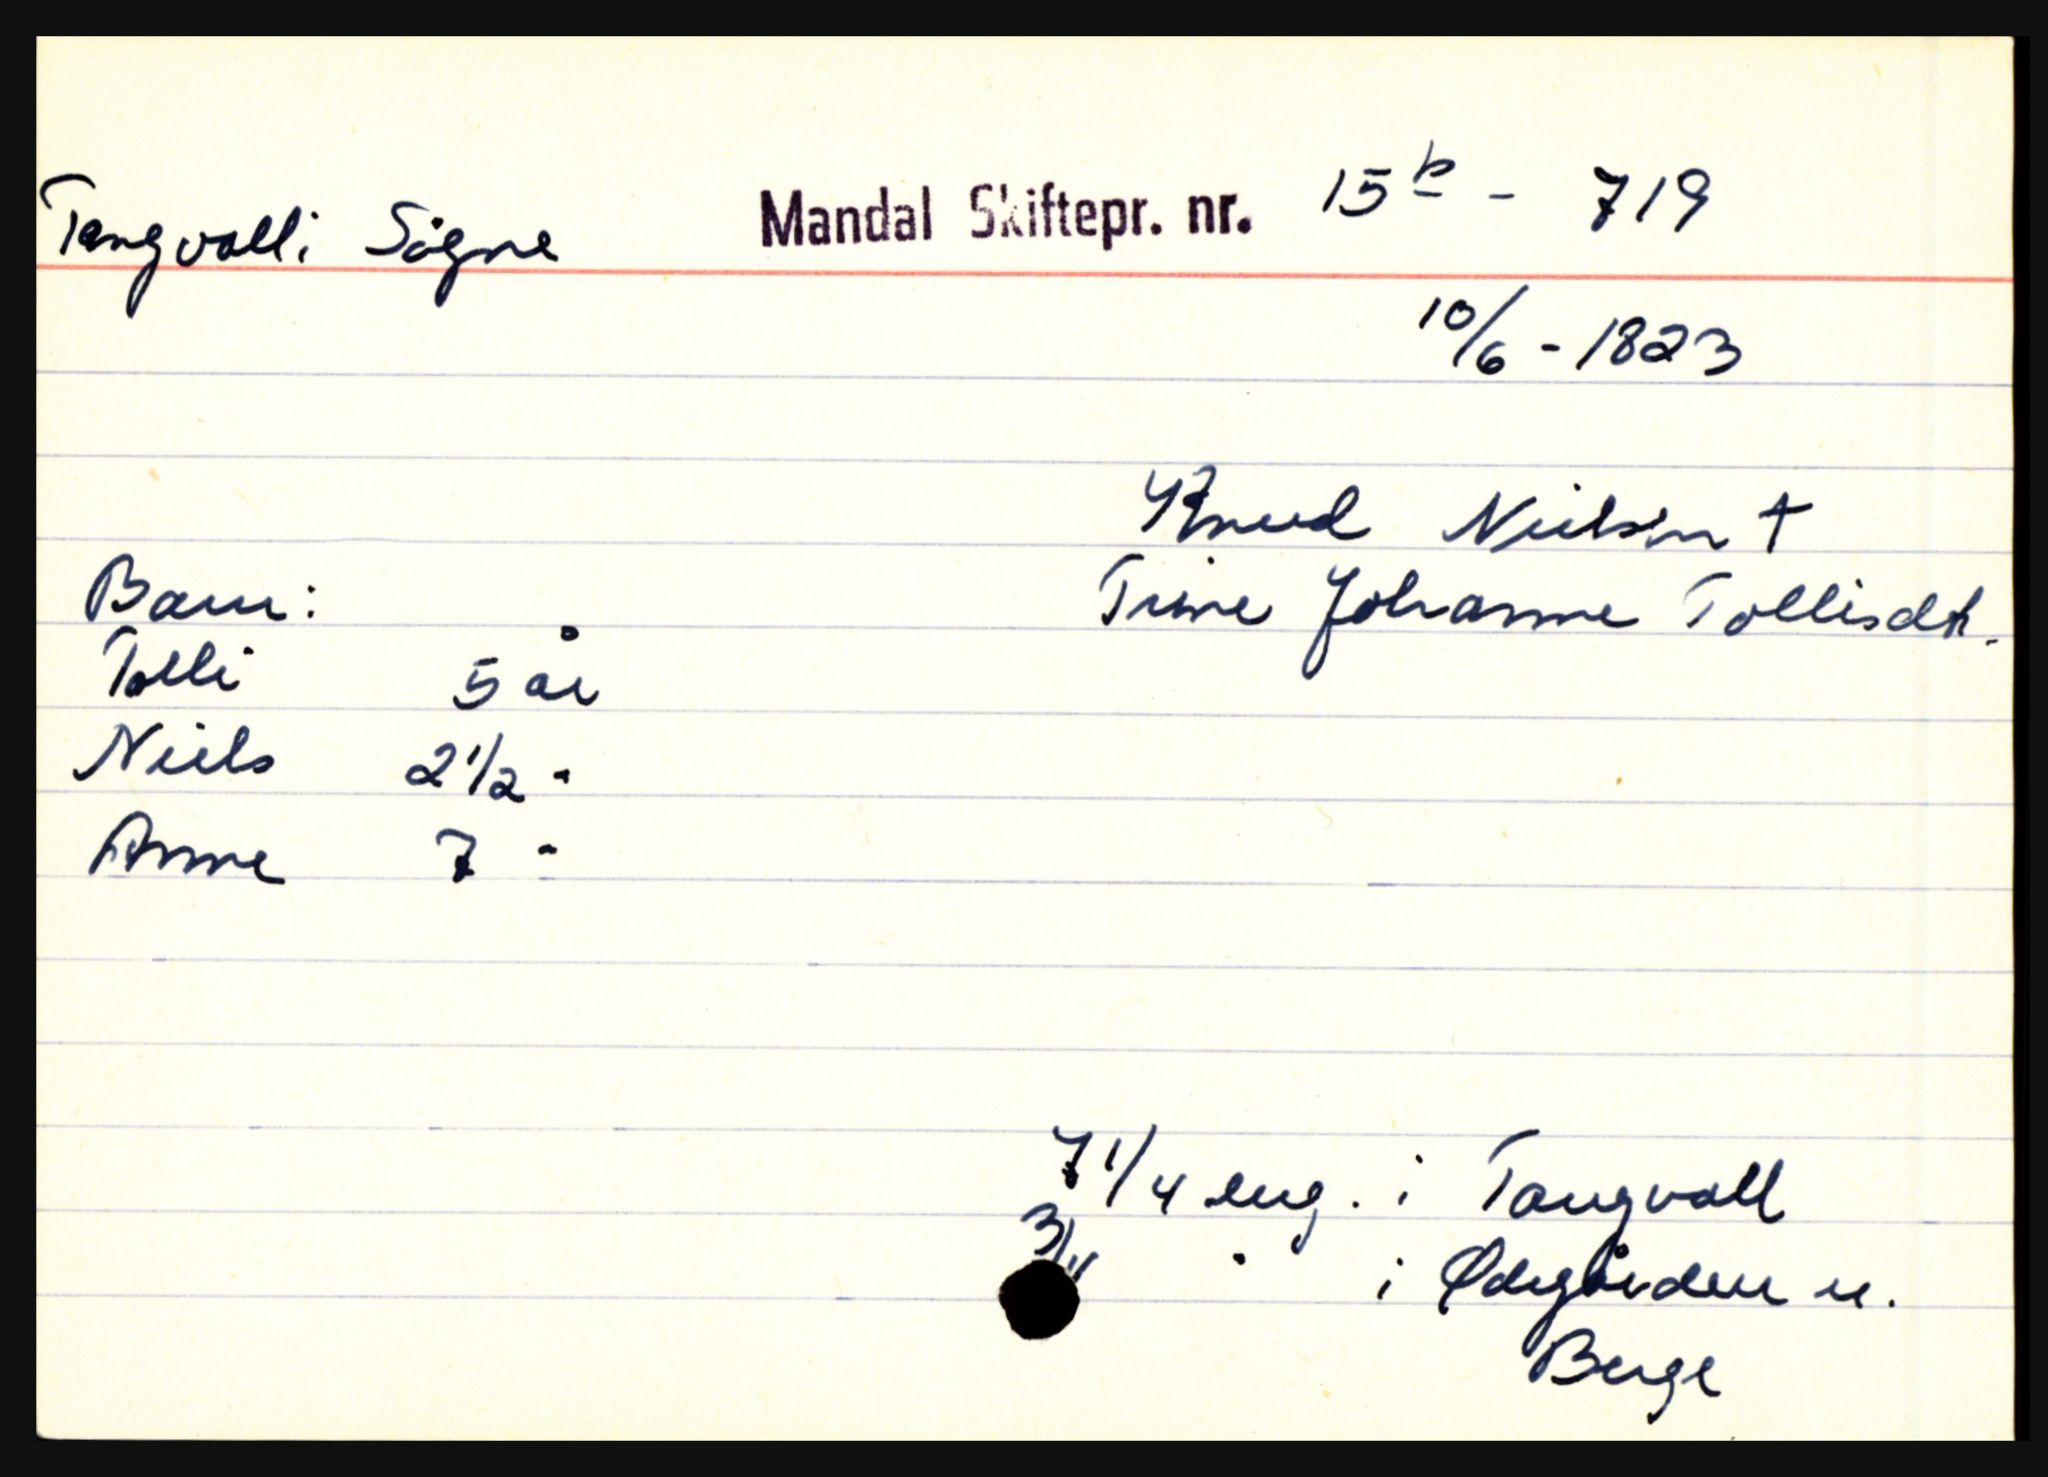 Tangvall i Søgne Mandal Skiftepr. nr. 15 b - 719
10/6 - 1823
Knud Nielsen †
Trine Johanne Tollisdtr.
Barn:
Tolli 5 år
Niels 2 1/2 "
Anne 7 "
7 1/4 eng. i Tangvall
3/4 " i Ødegården u.
Berge